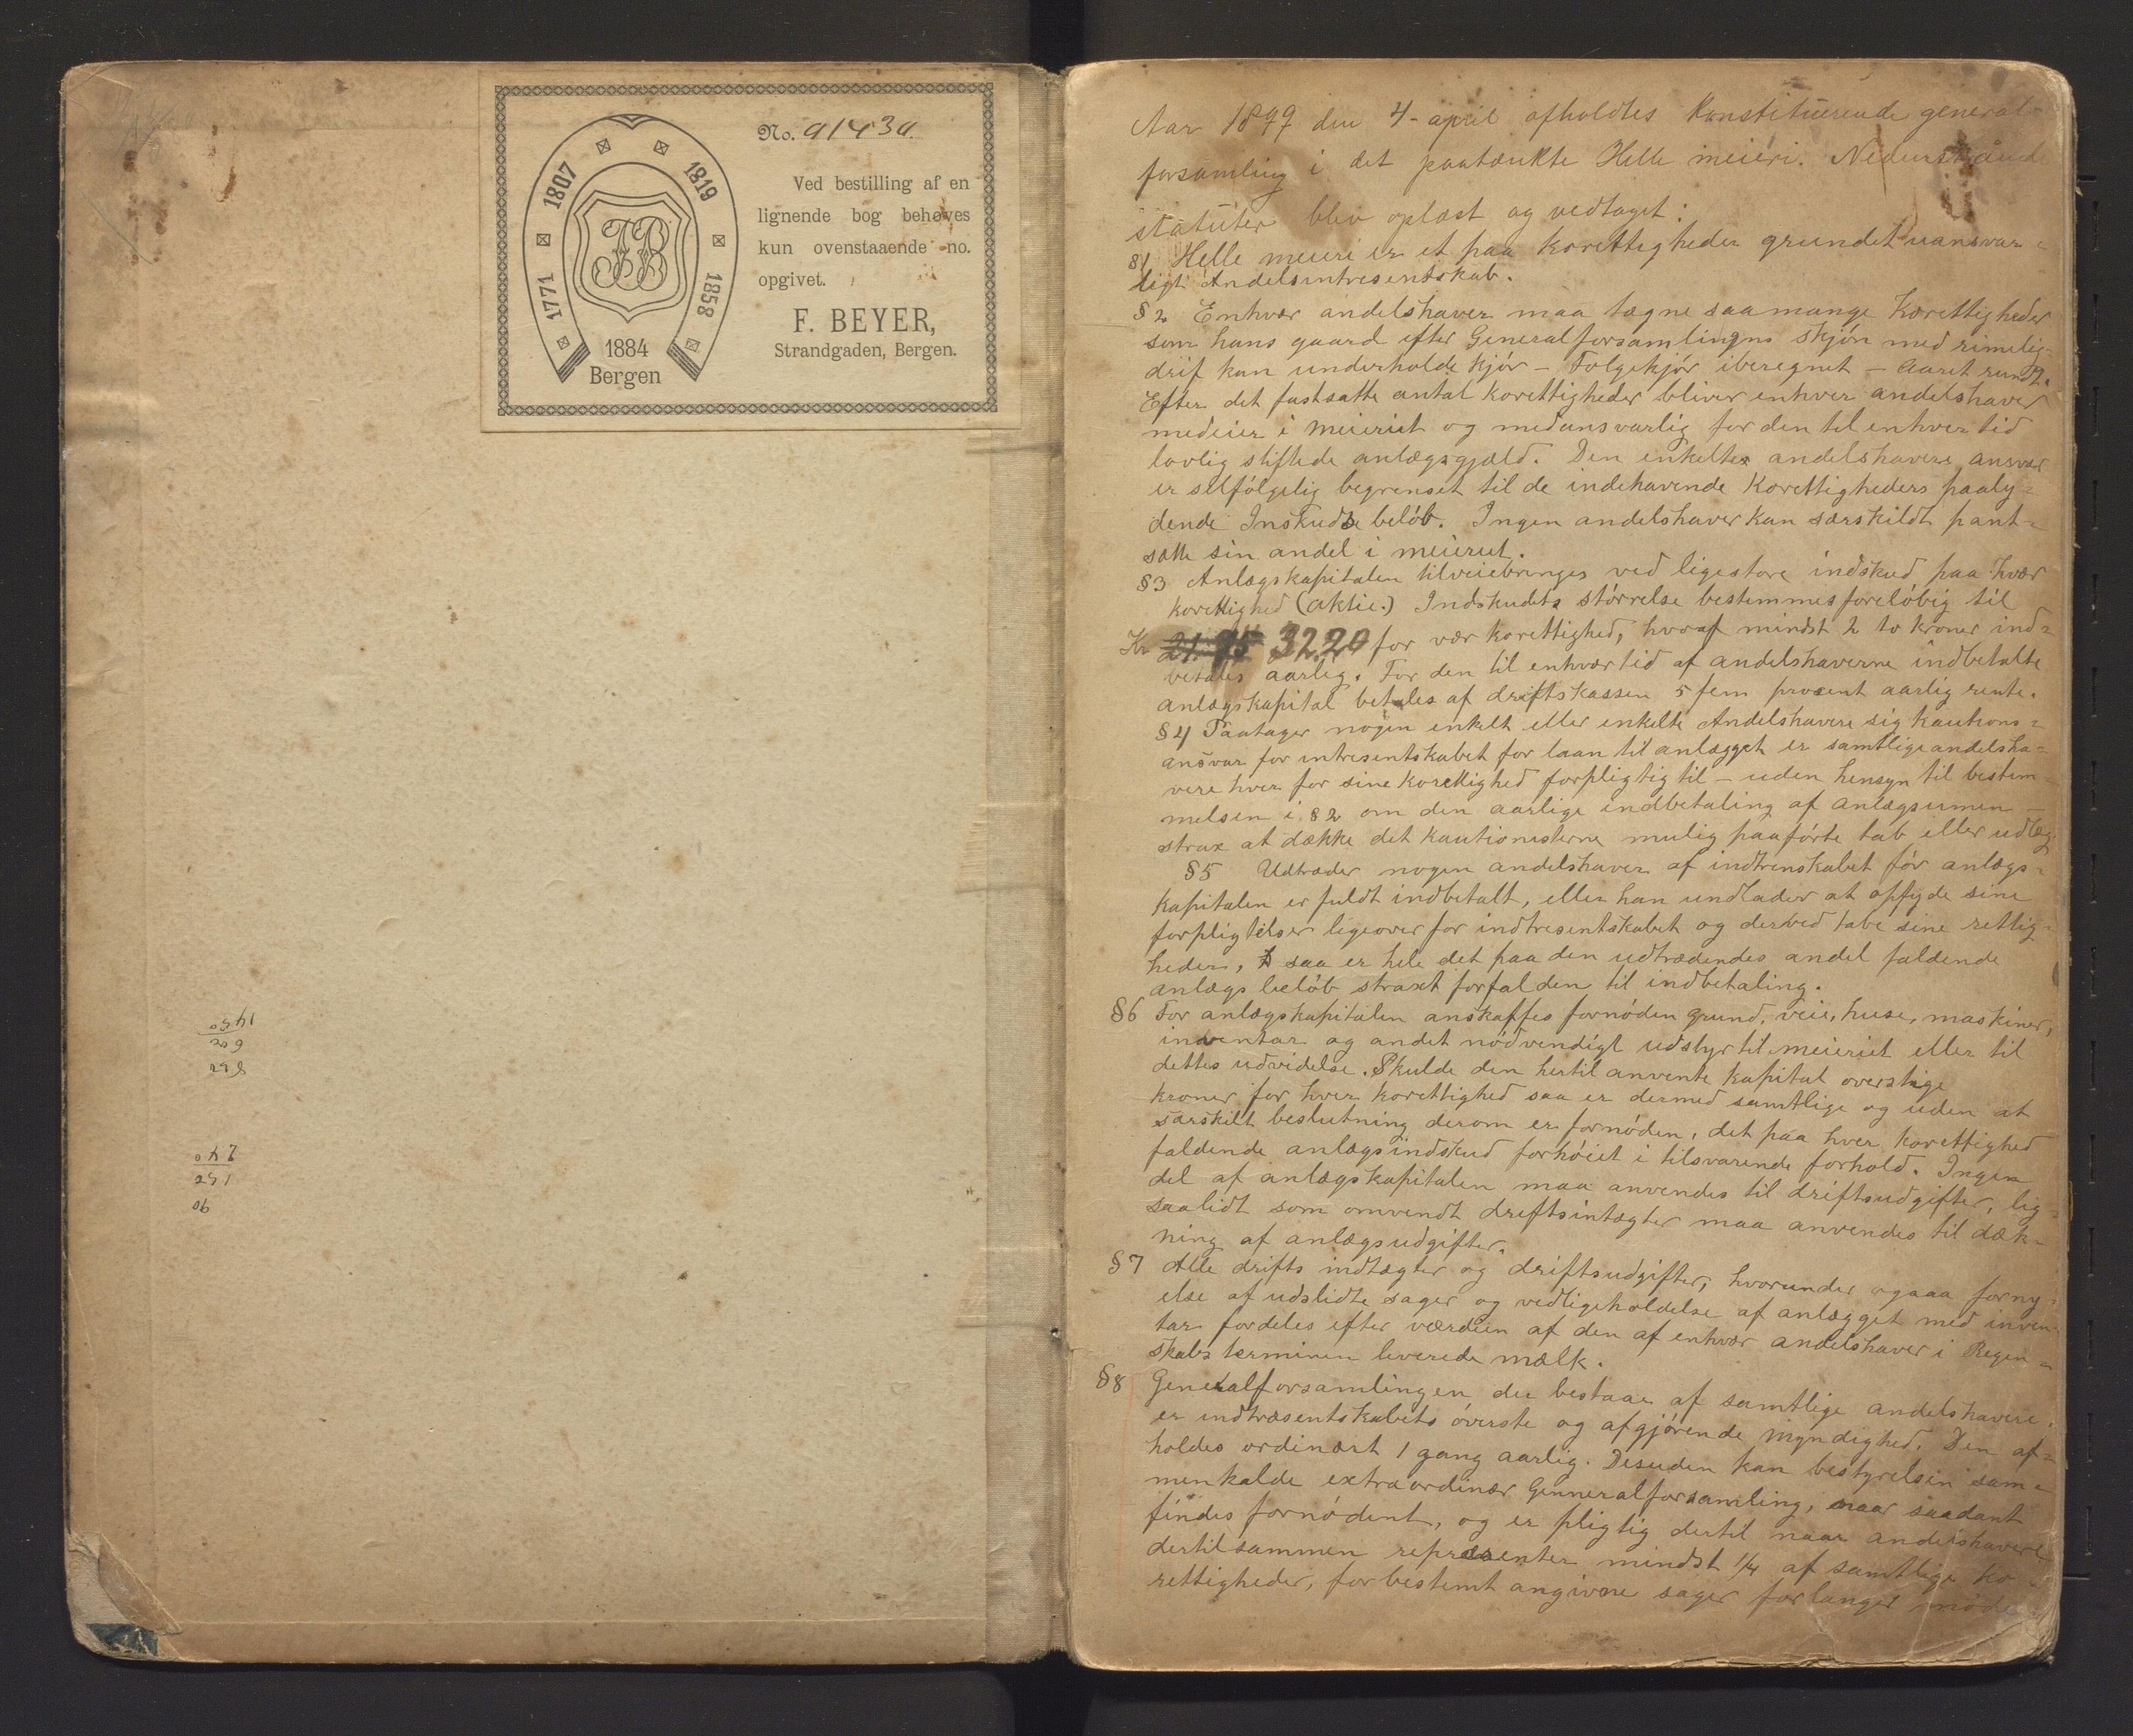 1771 1807 1819 1858
1884
Bergen
No. 91430.
Ved bestilling af en
lignende bog behøves
kun ovenstaaende no.
opgivet.
F. BEYER,
Strandgaden, Bergen.
822
602
1450
90
152
240
Aar 1899 den 4-april afholdtes Konstituerende general-
forsamling i det paatænkte Helle meieri. Nedenstående
statuter blev oplæst og vedtaget:
§1 Helle meieri er et paa korettigheder grundet uansvar=
ligt Andelsintresentskab.
§2 Enhvær andelshaver maa tegne saamange korettigheder
som hans gaard efter Generalforsamlingns skjøn med rimelig
drif kan underholde kjør - Folgekjør iberegnet - Aaret rundt.
Efter det fastsatte antal korettigheder bliver enhver andelshaver
medeier i meieriet og medansvarlig for den til enhver tid
lovlig stiftede anlægsgjæld. Den enkeltes andelshavers ansvar
er selfølgelig begrenset til de indehavende korettigheders paaly=
dende Inskuds beløb. Ingen andelshaver kan særskildt pant=
sætte sin andel i meieriet.
§3 Anlægskapitalen tilveiebringes ved ligestore indskud paa hvær
korettighed (aktie.) Indskudets størrelse bestemmes foreløbig til
Kr 21.95 32.20 for vær korettighed, hvoraf mindst 2 to kroner ind=
betales aarlig. For den til enhvær tid af andelshaverne indbetalte
anlægskapital betales af driftskassen 5 fem prosent aarlig rente.
§4 Paatager nogen enkelt eller enkelte Andelshavere sig kautions=
ansvar for intresentskabet for laan til anlægget er samtlige andelsha=
vere hver for sine korettighed forpligtig til - uden hensyn til bestem
melsen i §2 om den aarlige indbetaling af anlægsumen -
strax at dække det kautionisterne mulig paaførte tab eller udlæg.
§5 Udtræder nogen andelshaver af indtrenskabet før anlægs=
kapitalen er fuldt indbetalt, eller han undlader at opfyde sine
forpligtelser ligeover for indtresentskabet og derved tabe sine rettig=
heder, saa er hele det paa den udtrædendes andel faldende
anlægs beløb straxt forfalden til indbetaling.
§6 For anlægskapitalen anskaffes fornøden grund, veie, huse, maskiner,
inventar og andet nødvendigt udstyr til meieriet eller til
dettes udvidelse. Skulde den hertil anvente kapital overstige
kroner for hver korettighed saa er dermed samtlige og uden at
særskilt beslutning derom er fornøden, det paa hver korettighed
faldende anlægsindskud forhøiet i tilsvarende forhold. Ingen
del af anlægskapitalen maa anvendes til driftsudgifter, lig=
saalidt som omvendt driftsintægter maa anvendes til dæk=
ning af anlægsudgifter.
§7 Alle drifts indtægter og driftsudgifter, hvorunder ogaaa forny=
else af udslidte sager og vedligeholdelse af anlægget med inven=
tar fordeles efter værdien af den af enhvær andelshaver i Regen=
skabs terminen leverede mælk.
§8 Generalforsamlingen der bestaar af samtlige andelshavere.
er indtræsentskabets øverste og afgjørende myndighed. Den af=
holdes ordinært 1 gang aarlig. Desuden kan bestyrelsen sam=
menkalde extraordinær Genneralforsamling, naar saadant
findes fornødent, og er pligtig dertil naar andelshavere
dertilsammen representer mindst 1/4 af samtlige ko
rettigheder, for bestemt angivne sager forlanger møde